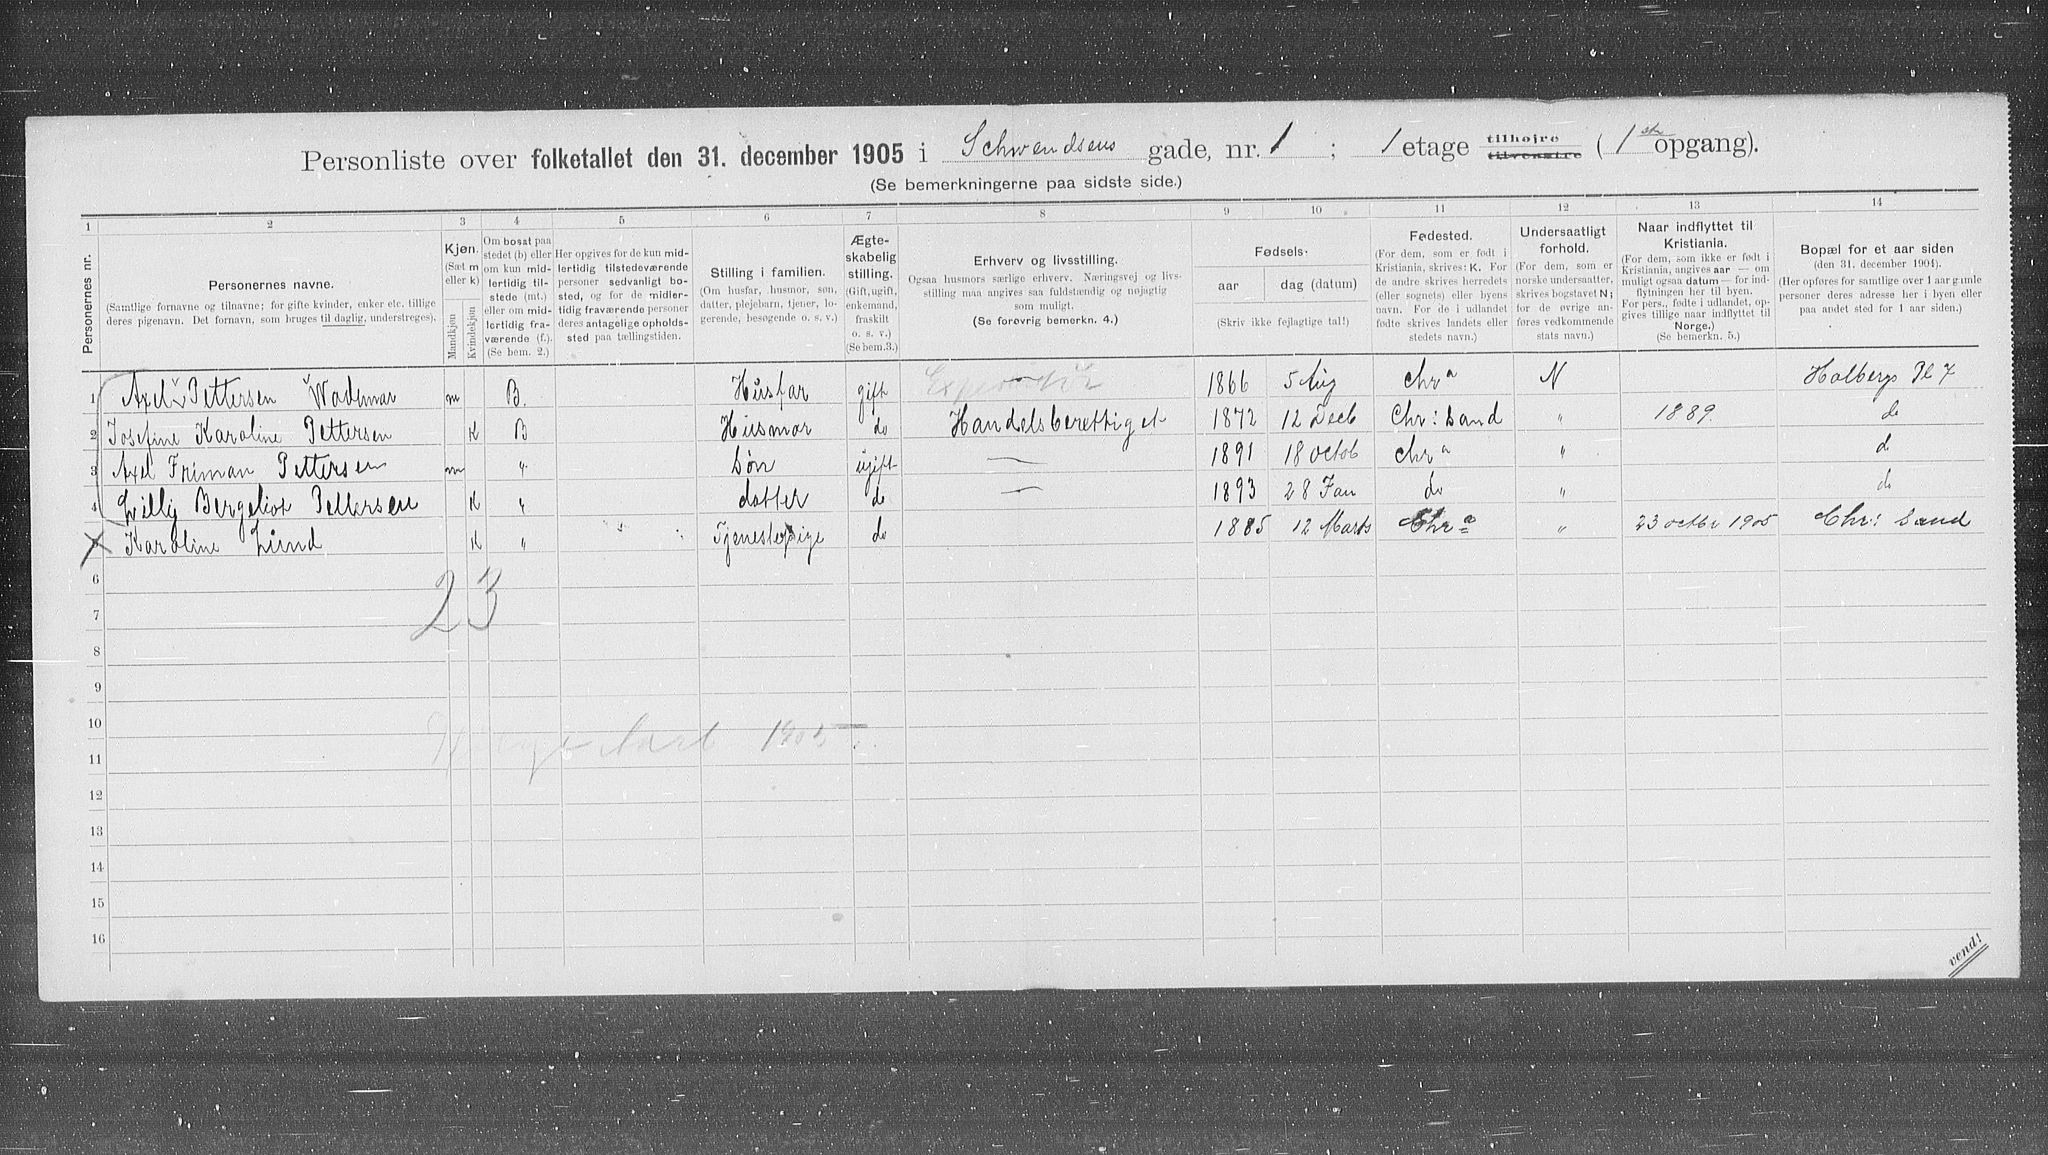 Personliste over folketallet den 31. december 1905 i Schwendsens gade, nr. 1 ; 1 etage tilhøjre tilvenstre ( 1ste opgang).
(Se bemerkningerne paa sidste side.)
1 2 3 4 5 6 7 8 9 10 11 12 13 14
Personernes nr.
Personernes navne.
(Samtlige fornavne og tilnavne; for gifte kvinder, enker etc. tillige deres pigenavn. Det fornavn, som bruges til daglig, understreges).
Kjøn.
(Sæt m eller k)
Mandkjøn
Kvindekjøn
Om bosat paa stedet (b) eller om kun midlertidig tilstede (mt.) eller om midlertidig fraværende (f.). (Se bem. 2.)
Her opgives for de kun midlertidig tilstedeværende personer sedvanligt bosted, og for de midlertidig fraværende personer deres antagelige opholdssted paa tællingstiden.
Stilling i familien.
(Om husfar, husmor, søn, datter, plejebarn, tjener, logerende, besøgende o. s. v.)
Ægteskabelig stilling.
(Gift, ugift, enkemand, fraskilt o. s. v.)
(Se bem. 3.)
Erhverv og livsstilling.
Ogsaa husmors særlige erhverv. Næringsvej og livsstilling maa angives saa fuldstændig og nøjagtig som muligt.
(Se forøvrig bemerkn. 4.)
Fødsels-
aar dag (datum)
(Skriv ikke fejlagtige tal!)
Fødested.
(For dem, som er født i Kristiania, skrives: K. For de andre skrives herredets (eller sognets) eller byens navn. For de i udlandet fødte skrives landets eller stedets navn.)
Undersaatligt forhold.
(For dem, som er norske undersaatter, skrives bogstavet N; for de øvrige anføres vedkommende stats navn.)
Naar indflyttet til Kristiania.
(For dem, som ikke er født i Kristiania, angives aar — om muligt ogsaa datum — for indflytningen her til byen. For pers., fødte i udlandet, opgives tillige naar indflyttet til Norge.)
(Se bemerkn. 5.)
Bopæl for et aar siden
(den 31. december 1904).
(Her opføres for samtlige over 1 aar gamle personer deres adresse her i byen eller paa andet sted for 1 aar siden.)
1 Axel Pettersen Wademar m B. Husfar gift Expeditør 1866 5 Aug Chra N Holbergs Pl 7
2 Josefine Karoline Pettersen K B Husmor do Handelsberettiget 1872 12 Decb Chr: Sand " 1889. do
3 Axel Friman Pettersen m " Søn ugift — 1891 18 octob Chra " d
4 Lilly Bergeliot Pettersen K " datter do — 1893 28 Jan do " do
Karoline Lund K " Tjenestepige do 1885 12 Marts Chra " 23 octbr 1905 Chr: Sand
6
2 3
7
8
9
10
1905
11
12
13
14
15
16
vend!